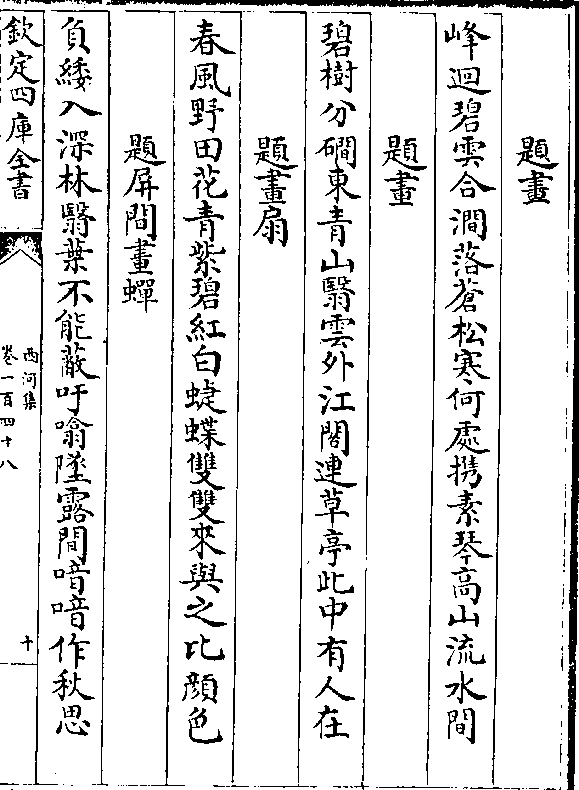 題畫
峰迴碧雲合澗落蒼松寒何處攜素琴髙山流水間
題畫
碧樹分磵東青山翳雲外江閣連草亭此中有人在
題畫扇
春風野田花青紫碧紅白蜨蝶雙雙來與之比顔色
題屏間畫蟬
負緌入深林翳葉不能蔽吁噏墜露間喑喑作秋思
欽定四庫全書
西河集
卷一百四十八
十